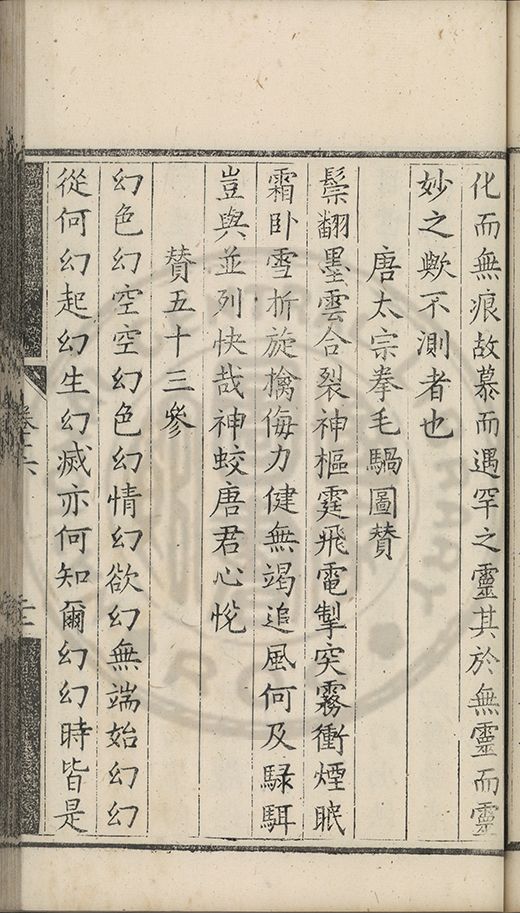 化而無痕故慕而遇罕之靈其於無靈而靈
妙之歟不測者也
唐太宗拳毛騧圖贊
鬃翻墨雲合裂神樞霆飛電掣突霧衝煙眠
霜卧雪折旋擒侮力健無竭追風何及騄駬
豈與並列快哉神蛟唐君心悅
贊五十三參
幻色幻空空幻色幻情幻欲幻無端始幻幻
從何幻起幻生幻滅亦何知爾幻幻時皆是
卷十六